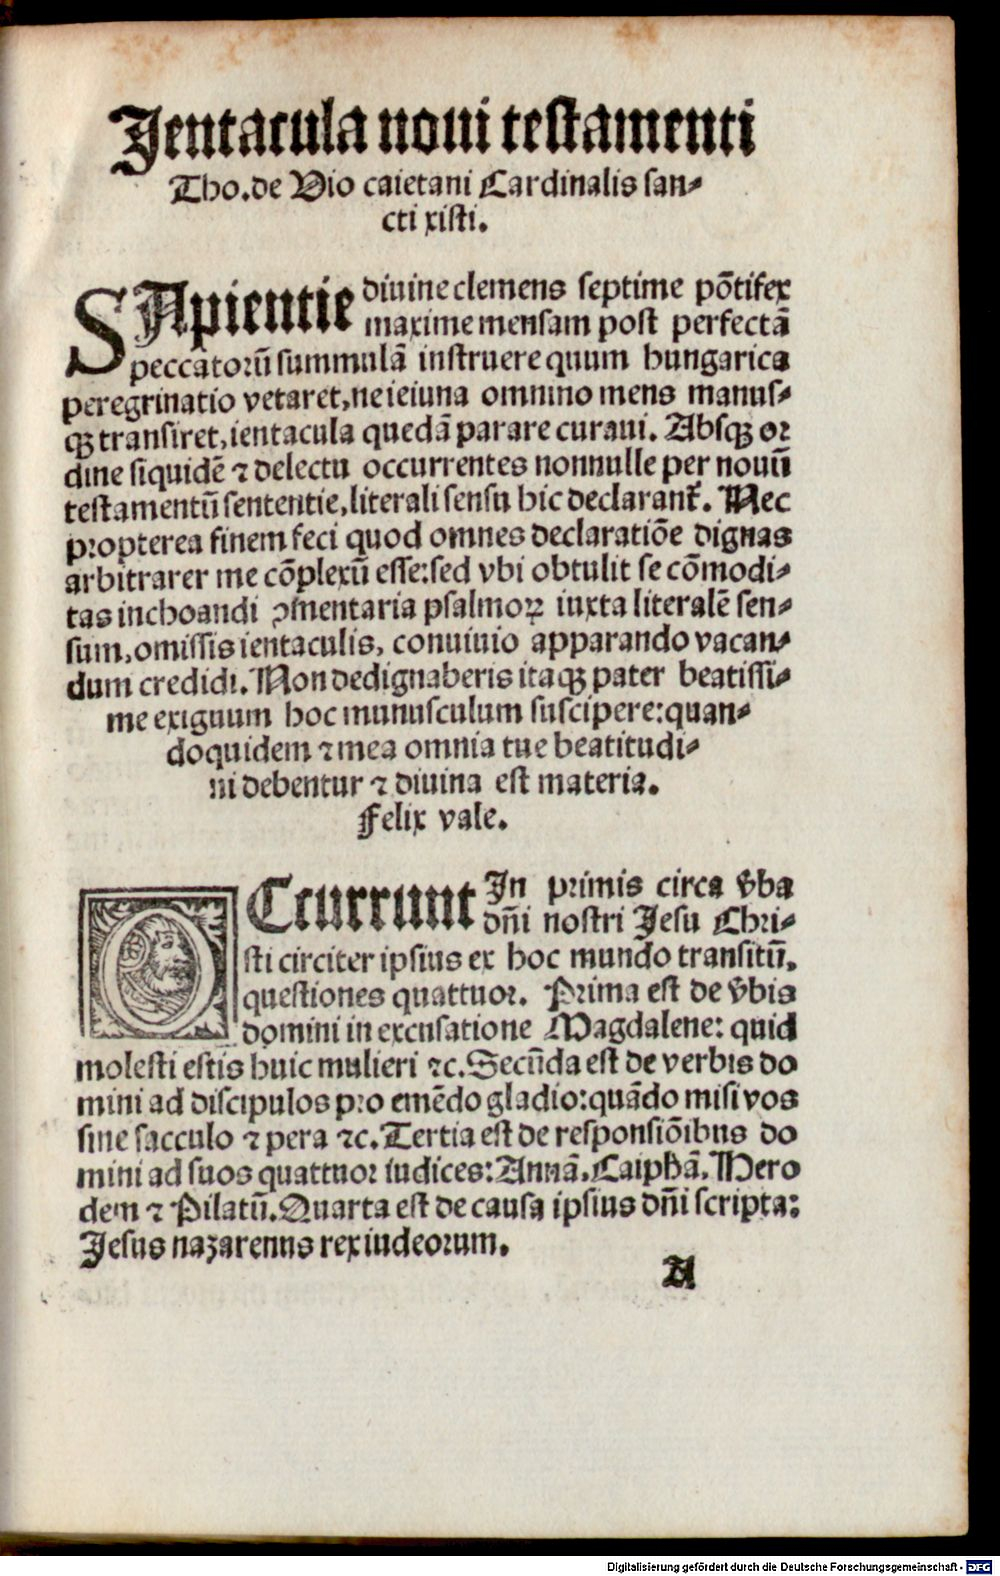 Jentacula noui testamenti
Tho. de Uio caietani Cardinalis san-
cti xisti.
SApientie diuine clemens septime põtifex
maxime mensam post perfectã
peccatorũ summulã instruere quum hungarica
peregrinatio vetaret, ne ieiuna omnino mens manus-
qꝫ transiret, ientacula quedã parare curaui. Absqꝫ or
dine siquidẽ ⁊ delectu occurrentes nonnulle per nouũ
testamentũ sententie, literali sensu hic declarant᷑. Nec
propterea finem feci quod omnes declaratiõe dignas
arbitrarer me cõplexũ esse: sed vbi obtulit se cõmodi-
tas inchoandi ꝯmentaria psalmoꝝ iuxta literalẽ sen-
sum, omissis ientaculis, conuiuio apparando vacan-
dum credidi. Non dedignaberis itaqꝫ pater beatissi-
me exiguum hoc munusculum suscipere: quan-
doquidem ⁊ mea omnia tue beatitudi-
ni debentur ⁊ diuina est materia.
Felix vale.
OCcurrunt In primis circa v̄ba
dñi nostri Jesu Chri-
sti circiter ipsius ex hoc mundo transitũ.
questiones quattuor. Prima est de v̄bis
domini in excusatione Magdalene: quid
molesti estis huic mulieri ⁊c. Secũda est de verbis do
mini ad discipulos pro emẽdo gladio: quãdo misi vos
sine sacculo ⁊ pera ⁊c. Tertia est de responsiõibus do
mini ad suos quattuor iudices: Annã, Caiphã, Hero
dem ⁊ Pilatũ. Quarta est de causa ipsius dñi scripta:
Jesus nazarenus rex iudeorum.
A
Digitalisierung gefördert durch die Deutsche Forschungsgemeinschaft - DFG